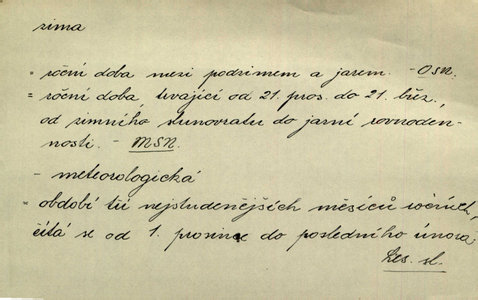 zima
= roční doba mezi podzimem a jarem. - OSN.
= roční doba, trvající od 21. pros. do 21. břez.,
od zimního slunovratu do jarní rovnoden-
nosti. - MSN.
- meteorologická
= období tří nejstudenějších měsíců ročních,
čítá se od 1. prosince do posledního února
sl.